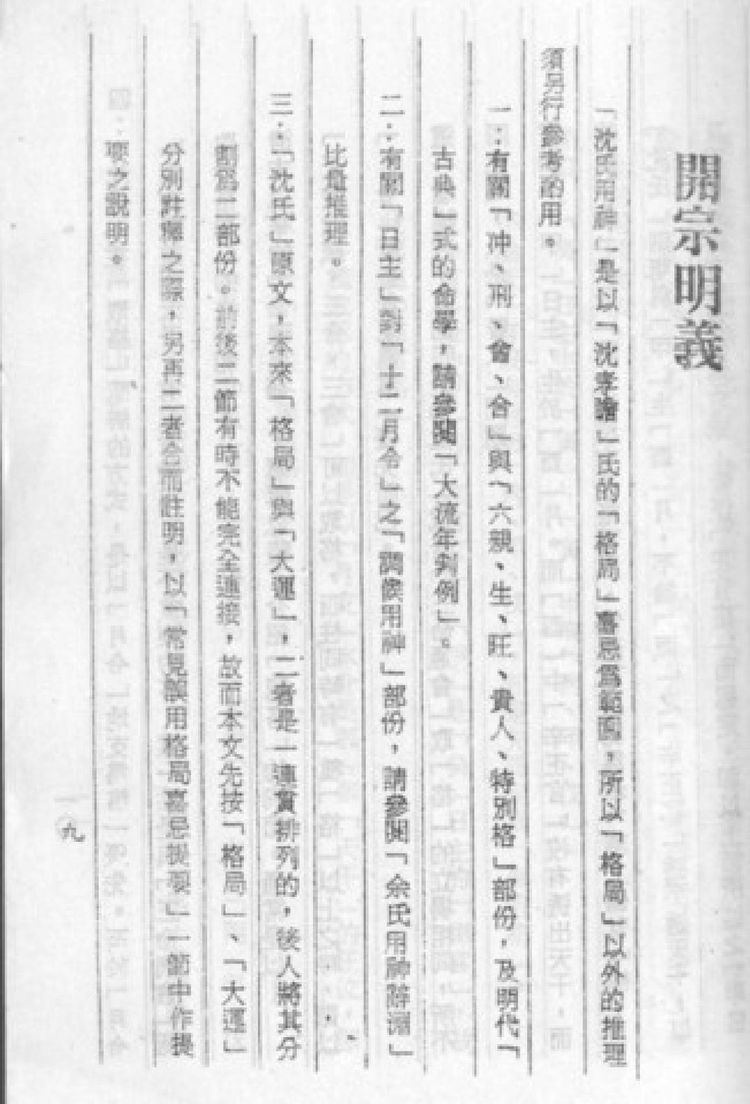 開宗明義
「沈氏用神」是以「沈孝瞻」氏的「格局」喜忌為範圍，所以「格局」以外的推理
須另行參考酌用。
一：有關「冲、刑、會、合」與「六親、生、旺、貴人、特別格」部份，及明代「
古典」式的命學，請參閱「大流年判例」。
二：有關「日主」對「十二月令」之「調候用神」部份，請參閱「余氏用神辭淵」
比量推理。
三：「沈氏」原文，本來「格局」與「大運」，二者是一連貫排列的，後人將其分
割為二部份。前後二節有時不能完全連接，故而本文先按「格局」、「大運」
分別註釋之際，另再二者合而註明，以「常見誤用格局喜忌提要」一節中作提
要之說明。
九